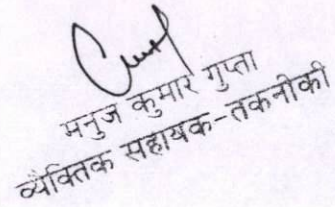 मनुज कुमार गुप्ता
व्यैक्तिक सहायक-तकनीकी